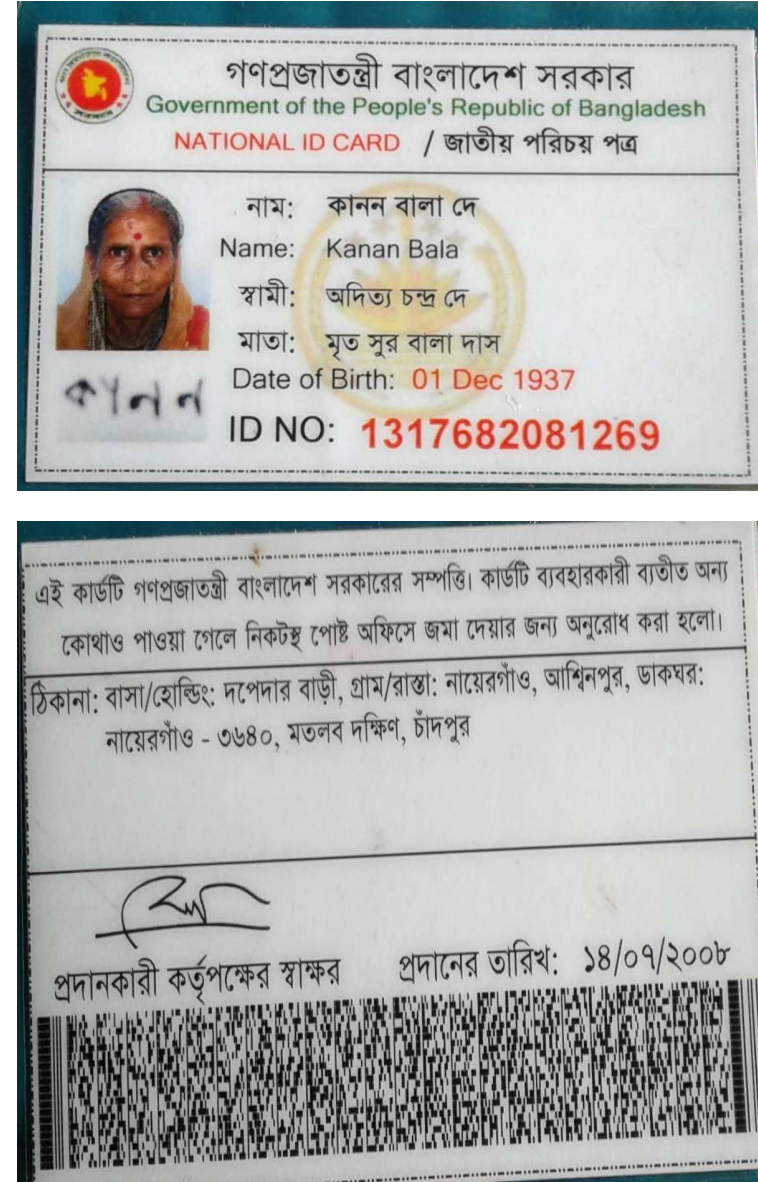 গণপ্রজাতন্ত্রী বাংলাদেশ সরকার
Government of the People's Republic of Bangladesh
NATIONAL ID CARD / জাতীয় পরিচয় পত্র
নাম: কানন বালা দে
Name: Kanan Bala
স্বামী: অদিত্য চন্দ্র দে
মাতা: মৃত সুর বালা দাস
Date of Birth: 01 Dec 1937
কানন
ID NO: 1317682081269
এই কার্ডটি গণপ্রজাতন্ত্রী বাংলাদেশ সরকারের সম্পত্তি। কার্ডটি ব্যবহারকারী ব্যতীত অন্য
কোথাও পাওয়া গেলে নিকটস্থ পোষ্ট অফিসে জমা দেয়ার জন্য অনুরোধ করা হলো।
ঠিকানা: বাসা/হোল্ডিং: দপেদার বাড়ী, গ্রাম/রাস্তা: নায়েরগাঁও, আশ্বিনপুর, ডাকঘর:
নায়েরগাঁও - ৩৬৪০, মতলব দক্ষিণ, চাঁদপুর
প্রদানকারী কর্তৃপক্ষের স্বাক্ষর প্রদানের তারিখ: ১৪/০৭/২০০৮